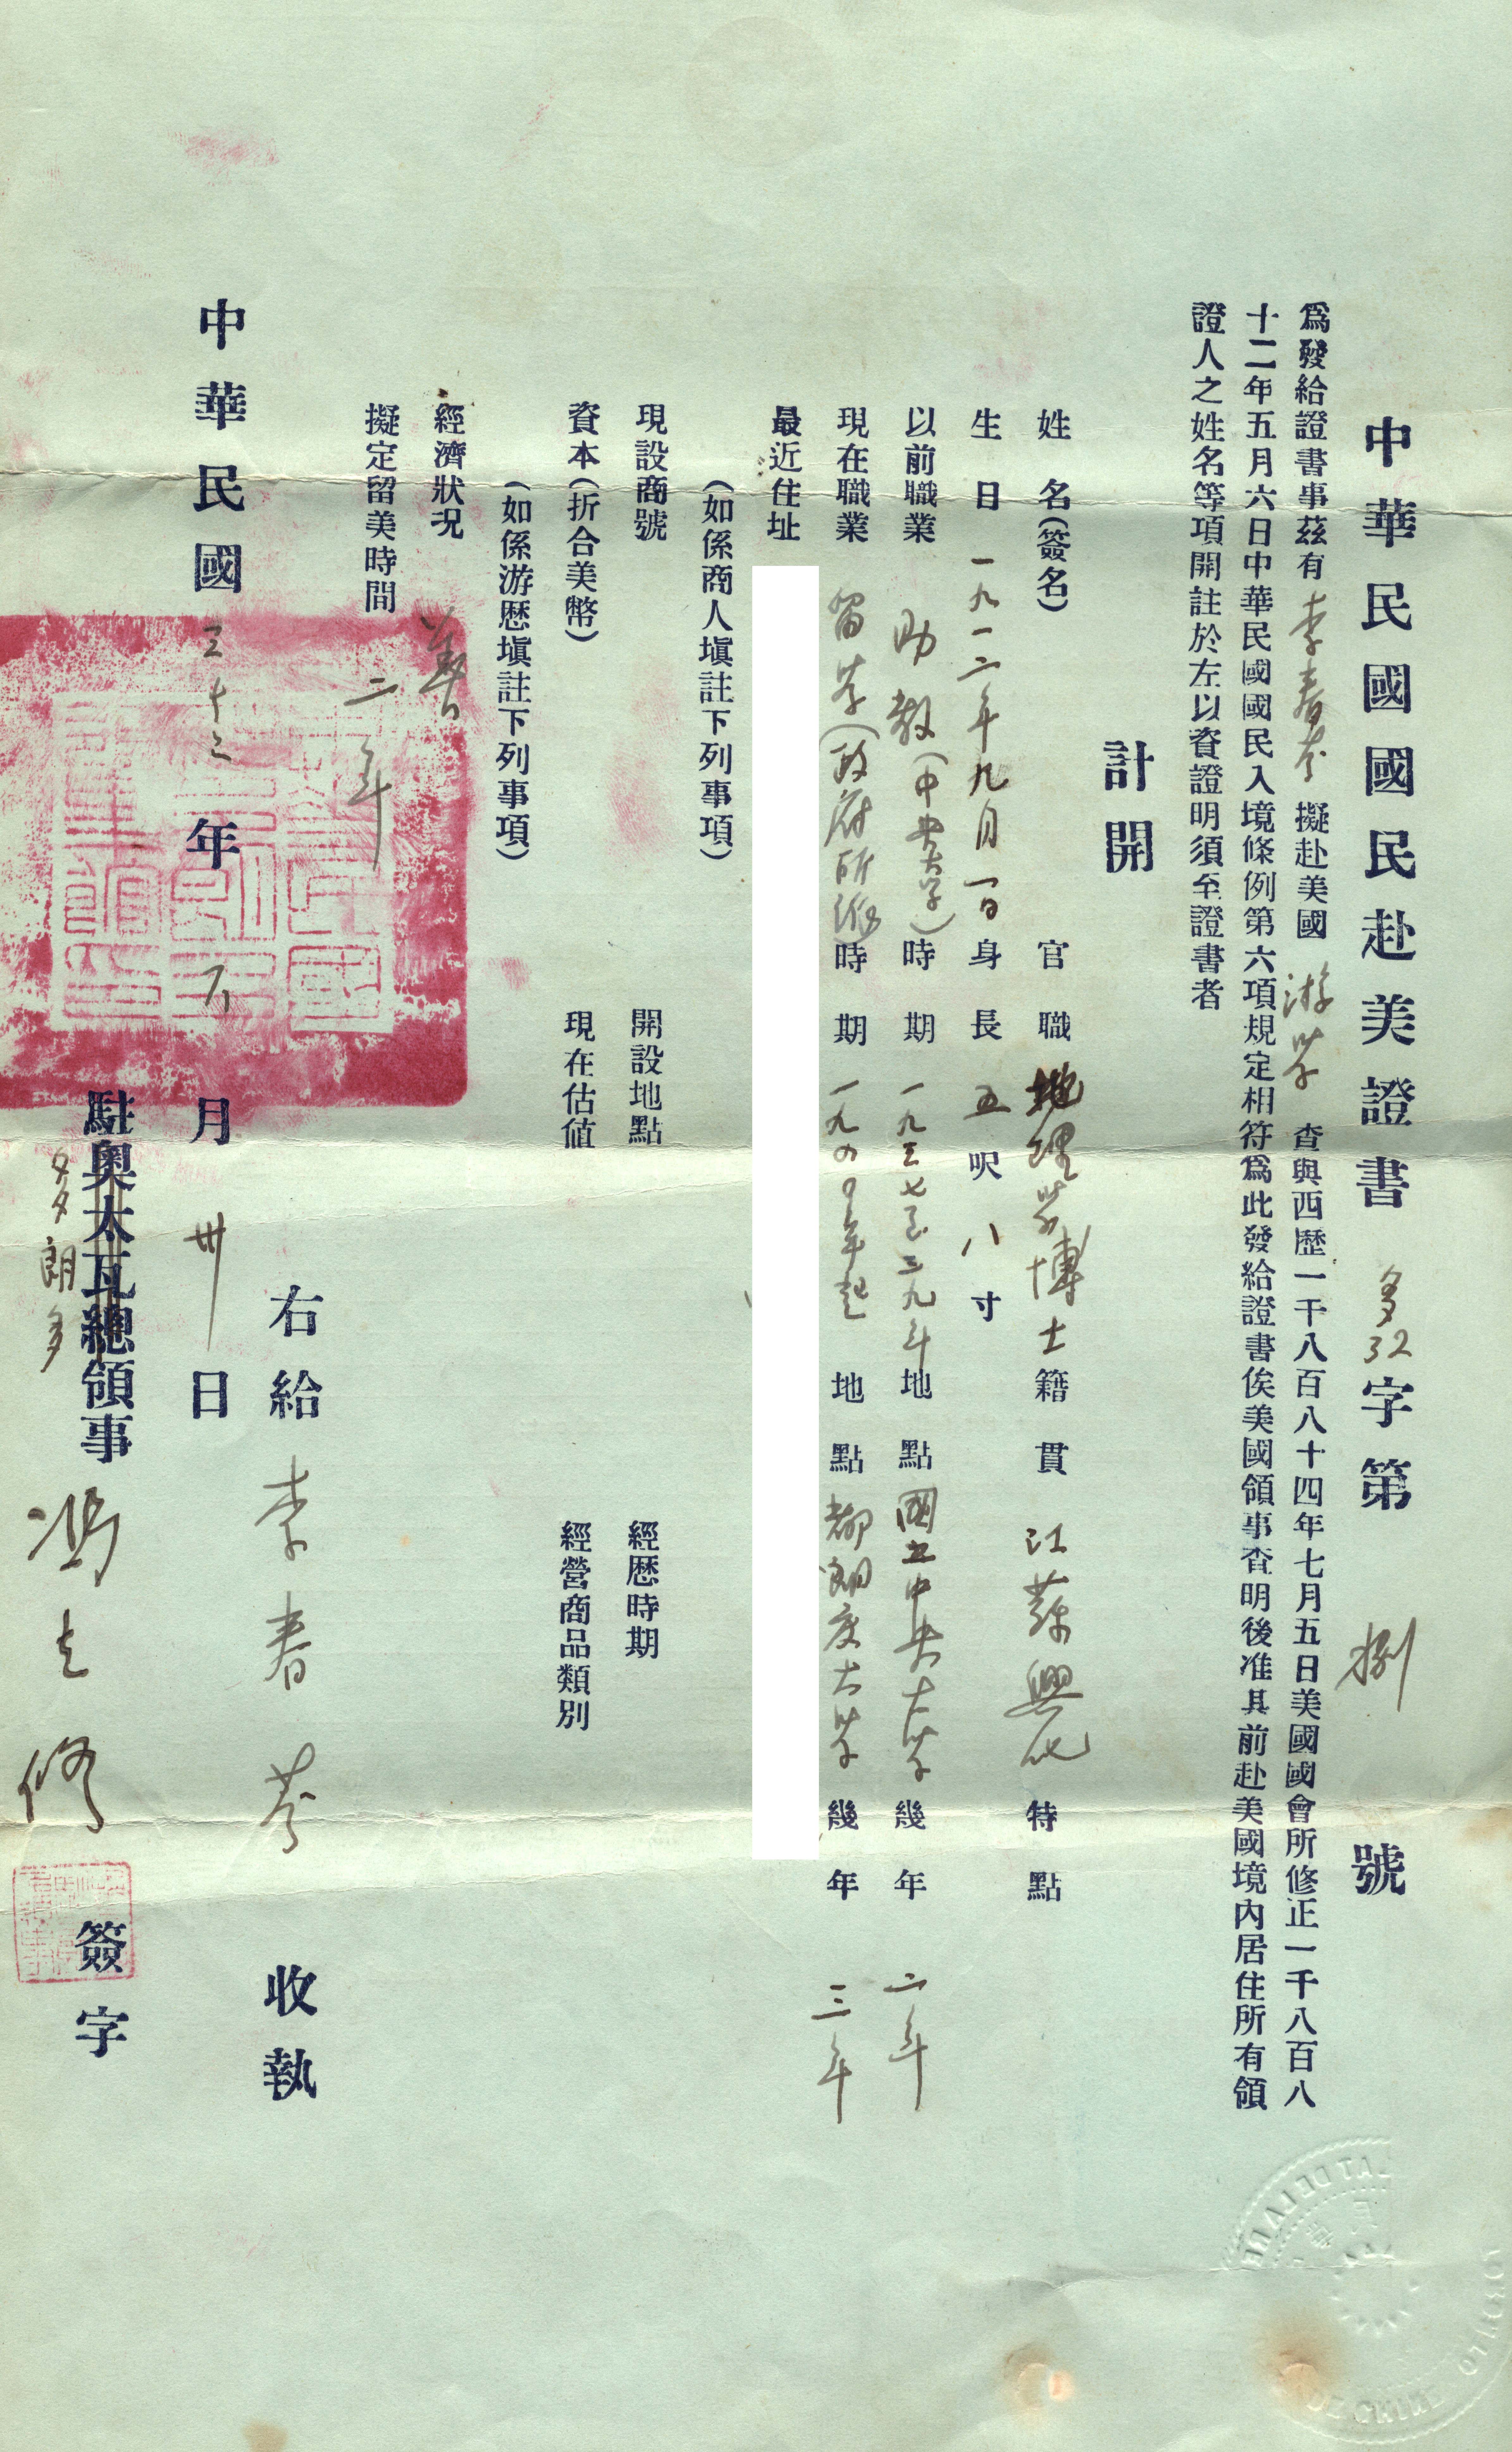 中華民國國民赴美證書 多32字第 捌 號
為發給證書事茲有李春芬擬赴美國游學查與西歷一千八百八十四年七月五日美國國會所修正一千八百八
十二年五月六日中華民國國民入境條例第六項規定相符為此發給證書俟美國領事查明後准其前赴美國境內居住所有領
證人之姓名等項開註於左以資證明須至證書者
計開
姓名(簽名) 官職 地理學博士 籍貫 江蘇興化 特點
生日 一九一二年九月一日 身長 五呎八寸
以前職業 助教(中央大學) 時期 一九三七至三九年 地點 國立中央大學 幾年 二年
現在職業 留學(政府所派) 時期 一九四〇年起 地點 都朗度大學 幾年 三年
最近住址
(如係商人塡註下列事項)
現設商號 開設地點 經歷時期
資本(折合美幣) 現在估値 經營商品類別
(如係游歷塡註下列事項)
經濟狀況 善
擬定留美時間 二年
右給 李春芬 收執
中華民國三十二年 八月 卅日
駐奧太瓦總領事 馮志修 簽字
多朗多